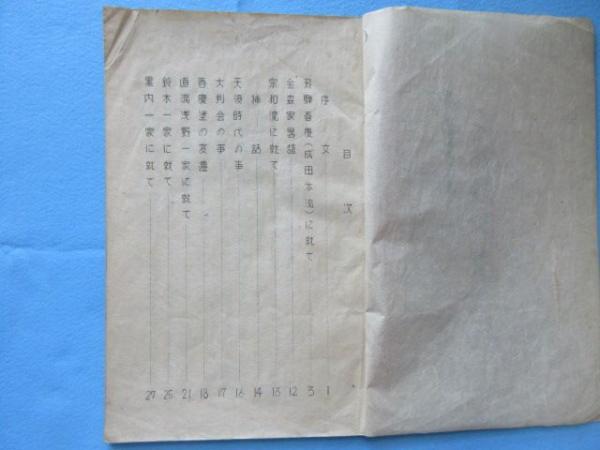 目次
序文 1
飛騨春慶(成田本流)に就て 3
金森家畧譜 12
宗和流に就て 13
挿話 14
天領時代の事 16
大判会の事 17
春慶塗の変遷 18
直満浅野一家に就て 21
鈴木一家に就て 25
黒内一家に就て 27